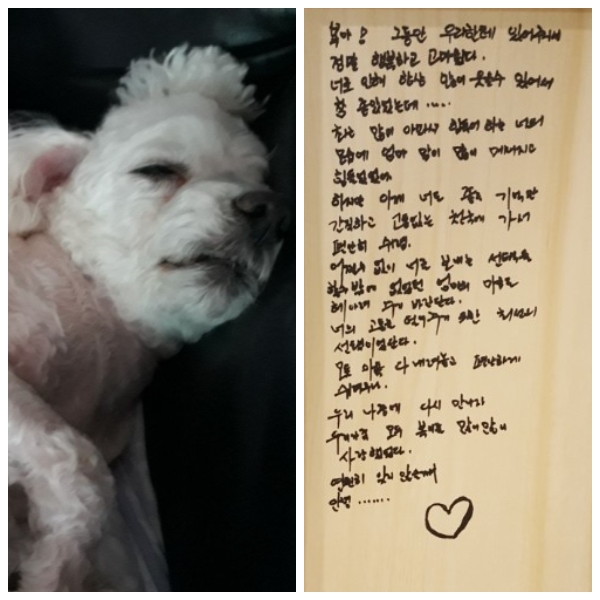 복아? 그동안 우리한테 있어주어서
정말 행복하고 고마웠다.
너로 인해 항상 많이 웃을수 있어서
참 좋았었는데 .....
많이 아파서 힘들어 하는 너의
모습에 엄마 맘이 많이
힘들었었어
하지만 이제 너도 좋은 기억만
간직하고 고통없는 천국에 가서
편안히 쉬렴.
어쩔수 없이 너를 보내는 선택을
할수밖에 없었던 엄마의 마음도
헤아려 주기 바란단다.
너의 고통을 덜어주기 위한 최선의
선택이었단다.
모든 아픔 다 내려놓고 편안하게
우리 나중에 다시 만나자
우리가족 모두 복이를 많이많이
사랑했었다.
영원히 잊지 않을께
안녕 .......